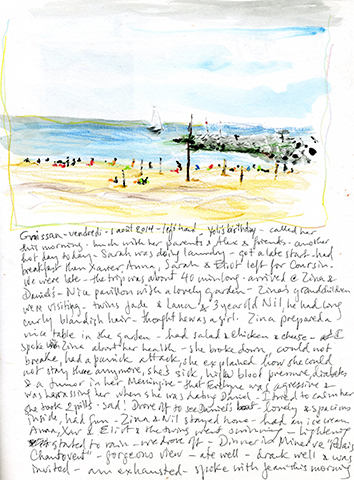 Gruissan - vendredi - 1 août 2014 - left hand - Yoli's birthday - called her
this morning - lunch with her parents & Alex & friends - another
hot day today - Sarah was doing laundry - got a late start - had
breakfast then Xavier, Anna, Sarah & Eliot left for Coursan.
We were late - the trip was about 40 min long - arrived @ Zina &
Daniel's - Nice pavillon with a lovely garden - Zina's grandchildren
were visiting - twins Jade & Lanca & 3 year old Nil, he had long
curly blondish hair - thought he was a girl. Zina prepared a
nice table in the garden - had salad & chicken & cheese -
spoke w Zina about her health - she broke down, could not
breathe, had a panick attack, she explained how she could
not stay there anymore, she's sick, high blood pressure, diabetes
& a tumor in her Meninges - that Evelyne was agressive &
was harassing her when she was dating Daniel - I tried to calm her
she took 2 pills - sad! Drove off to see Daniel's boat - lovely & spacious
inside, had fun - Zina & Nil stayed home - had an ice cream
Anna, Xav & Eliot & the twins went swimming - lightening
& started to rain - we drove off - Dinner in Minerve "Relais
Chantovent" - gorgeous view - ate well - drank well & was
invited - am exhausted - spoke with Jean this morning